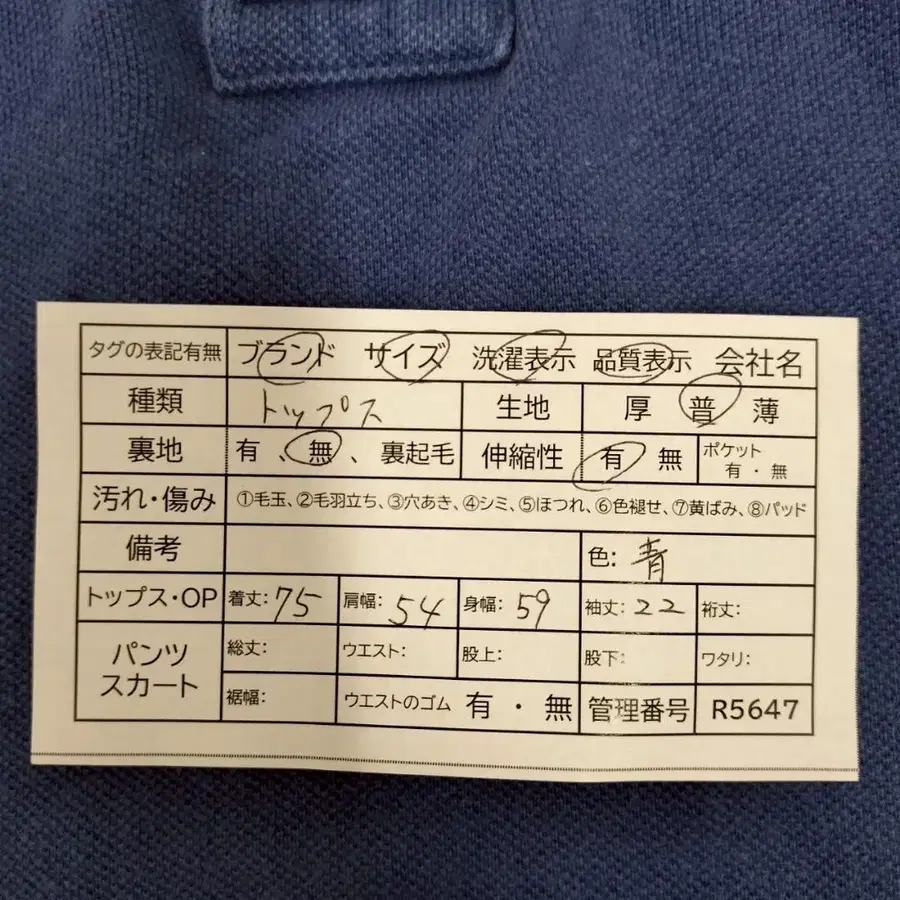 タグの表記有無 ブランド サイズ 洗濯表示 品質表示 会社名
種類 トップス 生地 厚 普 薄
裏地 有、無、裏起毛 伸縮性 有 無 ポケット 有・無
汚れ・傷み ①毛玉、②毛羽立ち、③穴あき、④シミ、⑤ほつれ、⑥色褪せ、⑦黄ばみ、⑧パッド
備考 色: 青
トップス・OP 着丈: 75 肩幅: 54 身幅: 59 袖丈: 22 裄丈:
パンツ スカート 総丈: ウエスト: 股上: 股下: ワタリ:
裾幅: ウエストのゴム 有・無 管理番号 R5647